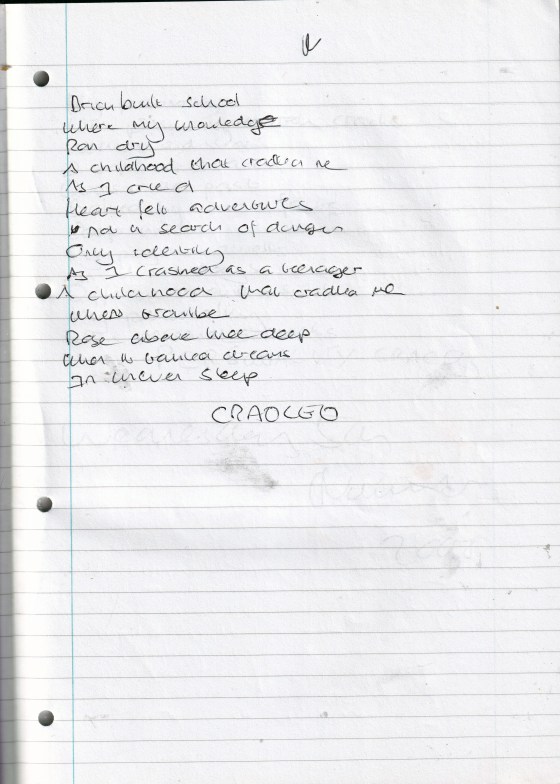 school
where my knowledge
Ran dry
A childhood that cradled me
As I cried
Heart felt adventures
not a search of danger
Only identity
As I crashed as a teenager
A childhood that cradled me
when trouble
Rose above knee deep
when I dreams
In sleep
CRADLED